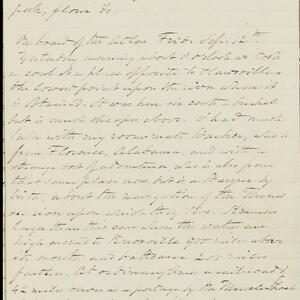 pork, flour &c.
On board of the Atlas Frid. Sep. 12th
Yesterday morning about 8 o'clock we took
in coal at a place opposite to Hawesville
the lower point upon the river where it
is obtained. It was here six cents a bushel
but is much cheaper above. I had much
talk with my room-mate Barker, who is
from Florence, Alabama, and with a
strong sort of a
this same place now, but is a
birth, about the navigation of the Tennes
see upon which they live. Steamers
larger than this can when the waters are
high ascend to Knoxville 900 miles above
its mouth and
farther. At ordinary times a railroad of
42 miles serves as a portage by the Muscle Shoals